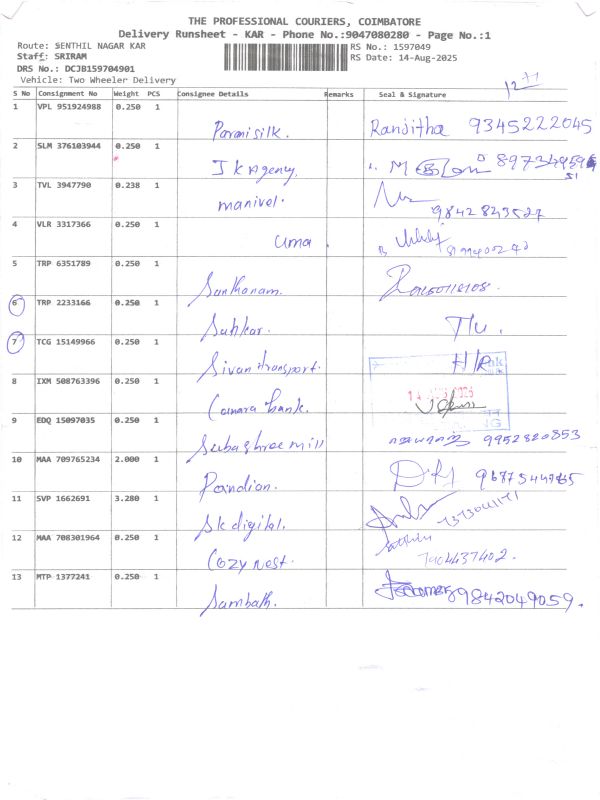 THE PROFESSIONAL COURIERS, COIMBATORE
Delivery Runsheet - KAR - Phone No.:9047080280 - Page No.:1
Route: SENTHIL NAGAR KAR RS No.: 1597049
Staff: SRIRAM RS Date: 14-Aug-2025
DRS No.: DCJB159704901
Vehicle: Two Wheeler Delivery
S No Consignment No Weight PCS Consignee Details Remarks Seal & Signature
1 VPL 951924988 0.250 1
Paranisilk. Ranjitha 9345222045
2 SLM 376103944 0.250 1
JK Agency,
3 TVL 3947790 0.238 1
manivel. 9842843527
4 VLR 3317366 0.250 1
uma
5 TRP 6351789 0.250 1
Santhanam.
6 TRP 2233166 0.250 1
T/u.
7 TCG 15149966 0.250 1
Sivan transport. H/R
8 IXM 508763396 0.250 1
Canara bank.
9 EDQ 15097035 0.250 1
Subashree mill 9952820853
10 MAA 709765234 2.000 1
Pandian.
11 SVP 1662691 3.280 1
Sk digital.
12 MAA 708301964 0.250 1
Cozy nest. 7904437402.
13 MTP 1377241 0.250 1
Sambath. 9842049059.